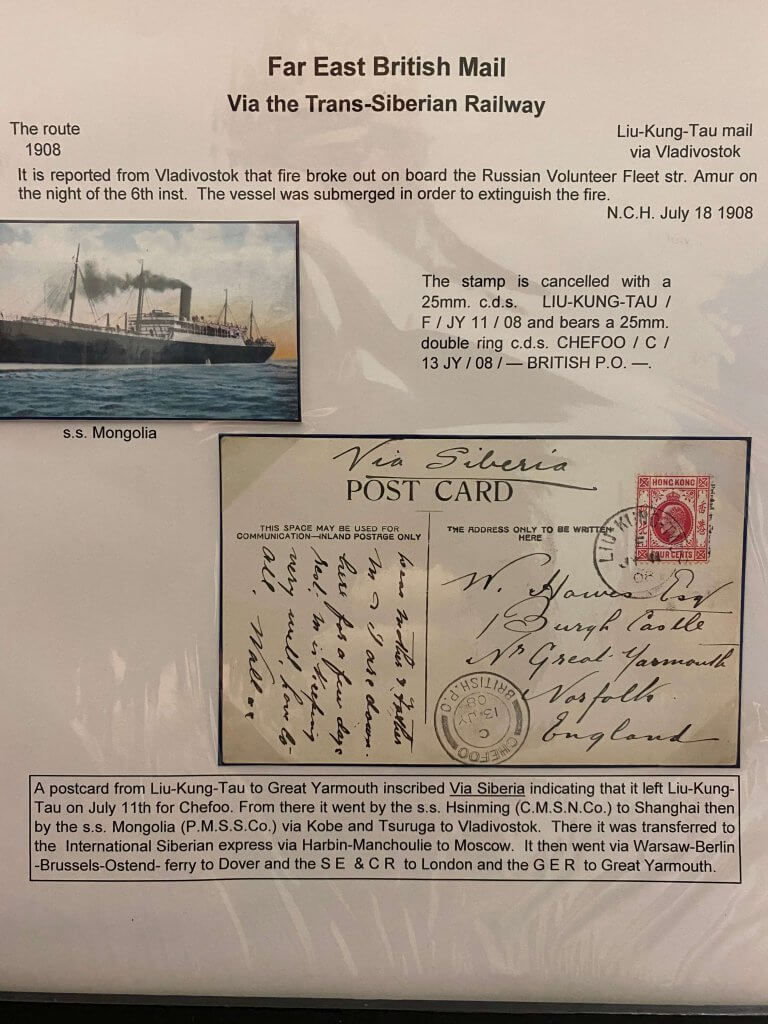 Far East British Mail
Via the Trans-Siberian Railway
The route
1908
Liu-Kung-Tau mail
via Vladivostok
It is reported from Vladivostok that fire broke out on board the Russian Volunteer Fleet str. Amur on
the night of the 6th inst. The vessel was submerged in order to extinguish the fire.
N.C.H. July 18 1908
The stamp is cancelled with a
25mm. c.d.s. LIU-KUNG-TAU /
F / JY 11 / 08 and bears a 25mm.
double ring c.d.s. CHEFOO / C /
13 JY / 08 / — BRITISH P.O. —.
s.s. Mongolia
Via Siberia
POST CARD
THIS SPACE MAY BE USED FOR
COMMUNICATION—INLAND POSTAGE ONLY
THE ADDRESS ONLY TO BE WRITTEN
HERE
HONG KONG
FOUR CENTS
LIU KUNG
08
Dear Mother & Father
M & I are down
here for a few days
rest. M is keeping
very well, love to
all.
W. Hawes Esq
1 Burgh Castle
Nr Great Yarmouth
Norfolk
England
BRITISH.P.O
C
13 JY
08
CHEFOO
A postcard from Liu-Kung-Tau to Great Yarmouth inscribed Via Siberia indicating that it left Liu-Kung-
Tau on July 11th for Chefoo. From there it went by the s.s. Hsinming (C.M.S.N.Co.) to Shanghai then
by the s.s. Mongolia (P.M.S.S.Co.) via Kobe and Tsuruga to Vladivostok. There it was transferred to
the International Siberian express via Harbin-Manchoulie to Moscow. It then went via Warsaw-Berlin
-Brussels-Ostend- ferry to Dover and the S E & C R to London and the G E R to Great Yarmouth.